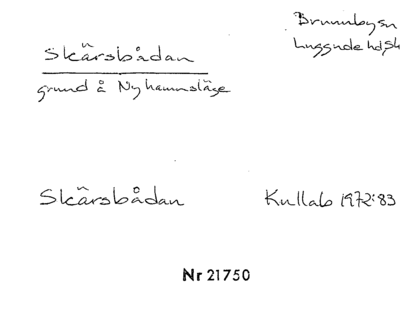 Brunnby sn
Luggude hd, Sk
Skärsbådan
grund å Nyhamnsläge
Skärsbådan Kullab 1972:83
Nr 21750